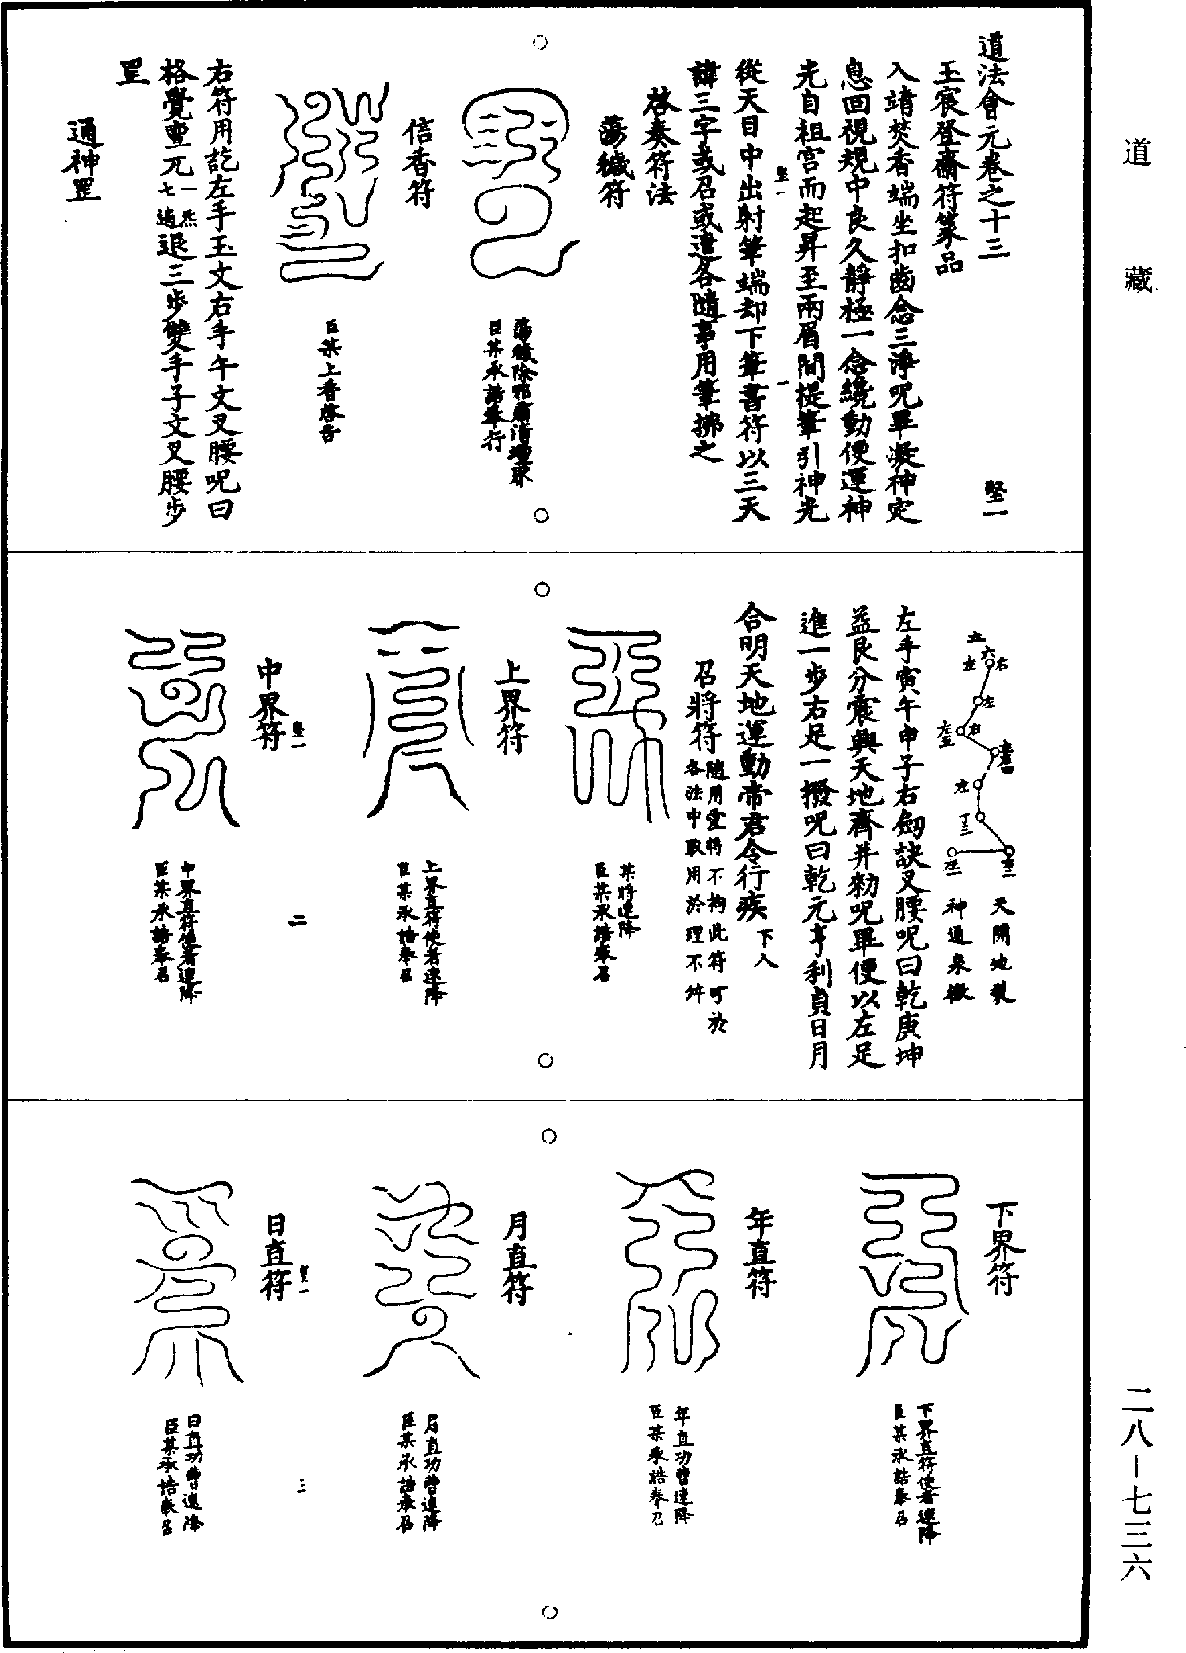 道藏
二八—七三六
道法會元卷之十三
竪一
玉宸登齋符篆品
入靖焚香端坐扣齒念三淨呪畢凝神定
息回視規中良久靜極一念纔動便運神
光自祖宮而起昇至兩眉間提筆引神光
從天目中出射筆端却下筆書符以三天
諱三字或召或遣各隨事用筆拂之
啓奏符法
蕩穢符
蕩穢除邪肅清壇界
臣某承誥奉行
信香符
臣某上香啓告
右符用訖左手玉文右手午文叉腰呪曰
格覺亶兀一炁七遍退三步雙手子文叉腰步
罡
通神罡
天開地裂
神通泉徹
左手寅午申子右劒訣叉腰呪曰乾庚坤
益艮分震與天地齊并勑呪畢便以左足
進一步右足一撥呪曰乾元亨利貞日月
合明天地運動帝君令行疾下入
召將符隨用雷將不拘此符可於
各法中取用於理不舛
某將速降
臣某承誥奉召
上界符
上界直符使者速降
臣某承誥奉召
中界符
竪一
二
中界直符使者速降
臣某承誥奉召
下界符
下界直符使者速降
臣某承誥奉召
年直符
年直功曹速降
臣某承誥奉召
月直符
月直功曹速降
臣某承誥奉召
竪一
三
日直符
日直功曹速降
臣某承誥奉召